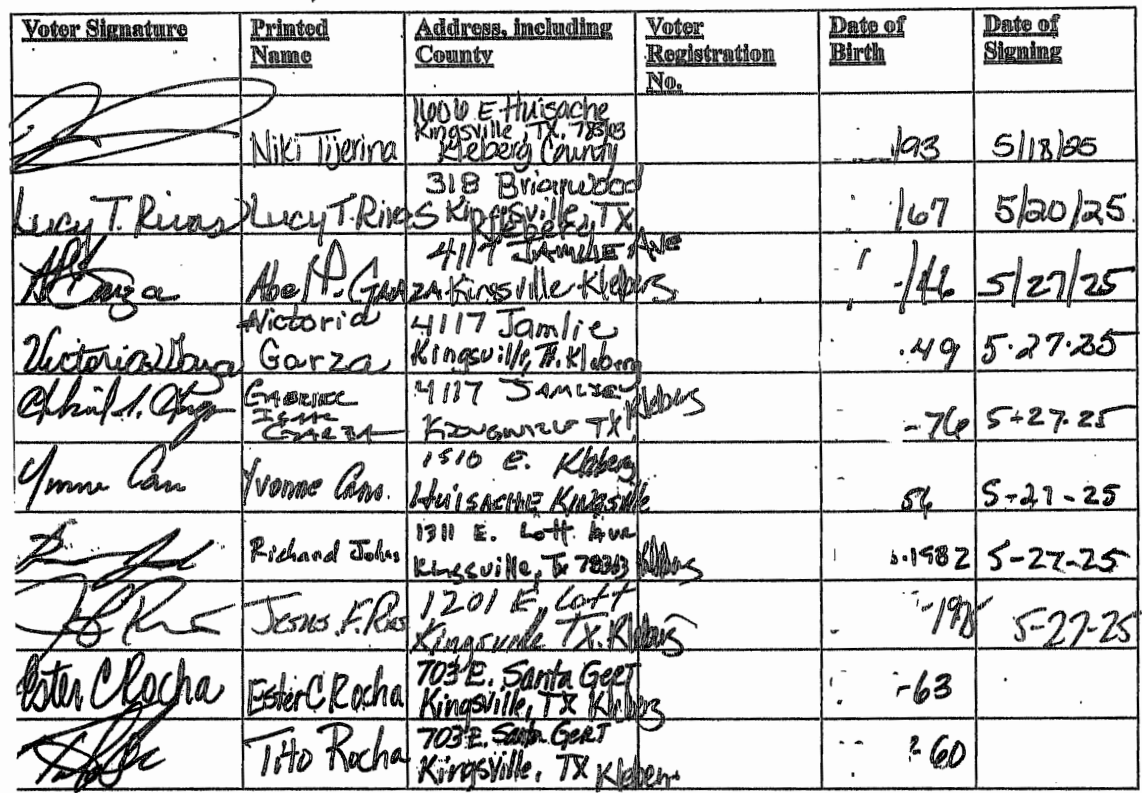 Voter Signature Printed Name Address, including County Voter Registration No. Date of Birth Date of Signing
Niki Tijerina 1606 E Huisache Kingsville, TX. 78363 Kleberg County /93 5/18/25
Lucy T. Rivas Lucy T. Rivas 318 Briarwood Kingsville, TX Kleberg /67 5/20/25
Abel P. Garza 4117 Jamlie Ave Kingsville Kleberg -/46 5/27/25
Victoria Garza Victoria Garza 4117 Jamlie Kingsville, TX. Kleberg .49 5.27.25
Gabriel Isaac Garza 4117 Jamlie Kingsville TX, Kleberg -76 5-27.25
Yvonne 1510 E. Kleberg Huisache Kingsville 56 5-27-25
Richard Johns 1311 E. Lott Ave Kingsville, Tx 78363 Kleberg 1982 5-27-25
Jesus F. 1201 E. Lott Kingsville TX. Kleberg 5-27-25
Ester C Rocha Ester C Rocha 703 E. Santa Gert Kingsville, TX Kleberg -63
Tito Rocha 703 E. Santa Gert Kingsville, TX Kleberg -60